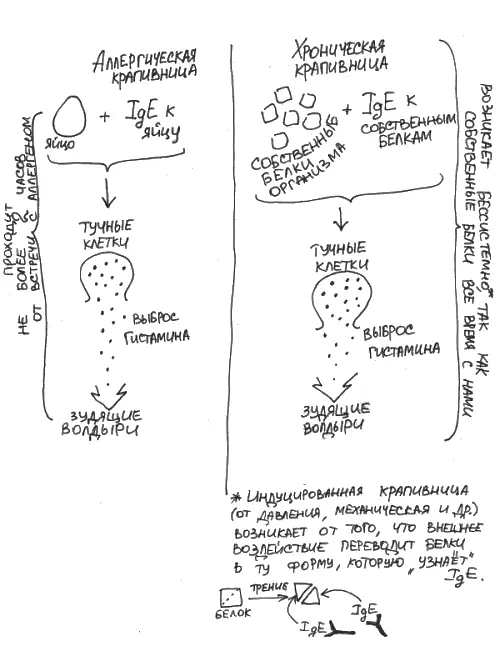 Аллергическая
крапивница
яйцо
+
IgE к
яйцу
тучные
клетки
выброс
гистамина
зудящие
волдыри
проходит
не более часов
от встречи с аллергеном
Хроническая
крапивница
собственные
белки
организма
+
IgE к
собственным
белкам
тучные
клетки
выброс
гистамина
зудящие
волдыри
возникает бессистемно*, так как
собственные белки все время с нами
* Индуцированная крапивница
(от давления, механическая и др)
возникает от того, что внешнее
воздействие переводит белки
в ту форму, которую „узнаёт"
IgE.
белок
трение
IgE
IgE